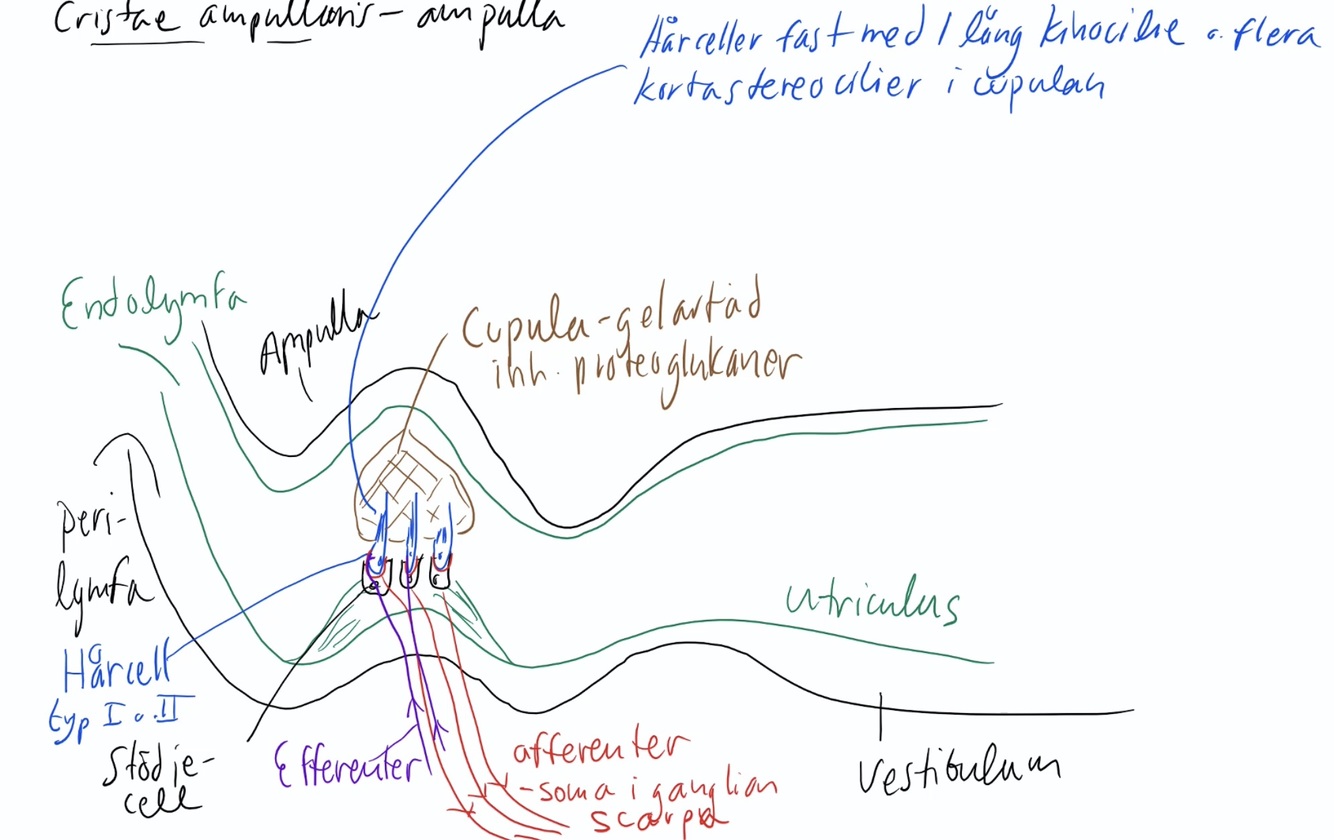 Cristae ampullaris - ampulla
Hårceller fast med 1 lång kinocilie o. flera
korta stereocilier i cupulan
Endolymfa
Ampulla
Cupula - gelartad
inh. proteoglukaner
Peri-
lymfa
Utriculus
Hårcell
typ I o. II
Stödje-
cell
Efferenter
afferenter
- soma i ganglion
scarpa
Vestibulum